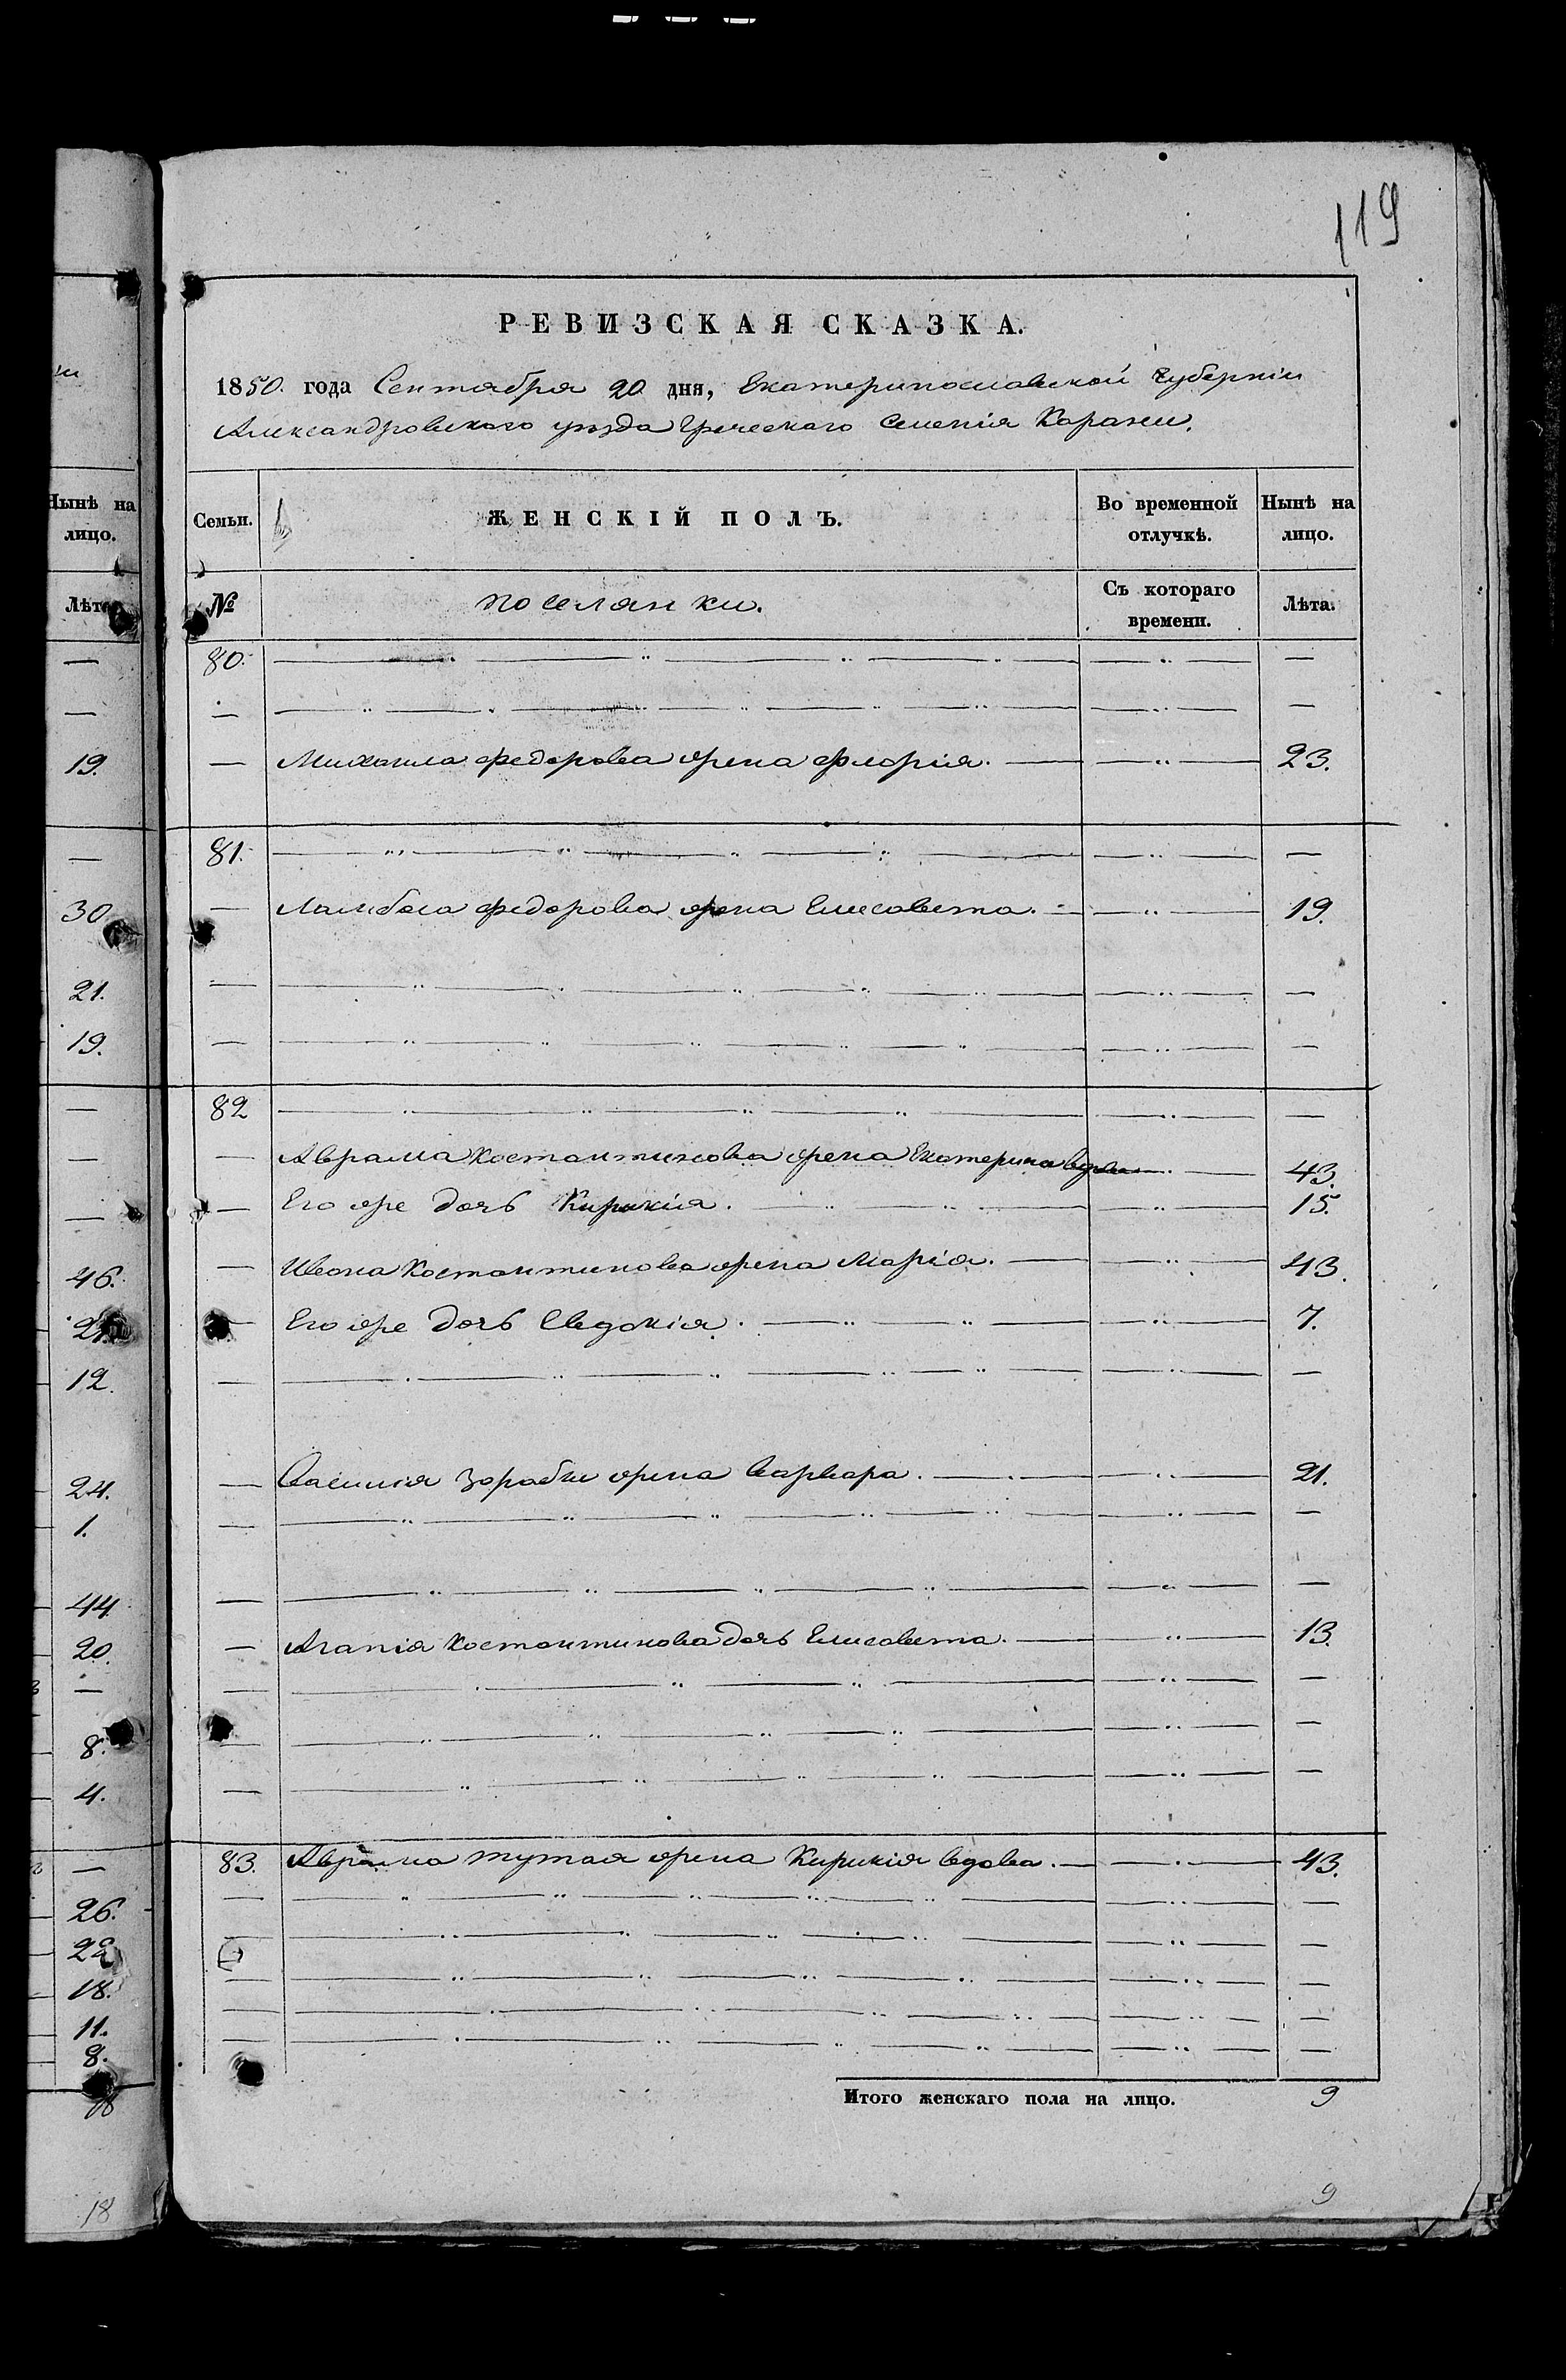 119
РЕВИЗСКАЯ СКАЗКА.
1850. года Сентября 20 дня, Екатеринославской Губерніи
Александровскаго уѣзда Греческаго Селенія Карани.
Нынѣ на лицо.
Лѣта
—
—
19.
—
30
21.
19.
—
—
—
46.
21.
12.
24.
1.
44.
20.
—
8.
4.
—
26.
22
18.
11.
8.
18
18
Семьи. ЖЕНСКІЙ ПОЛЪ. Во временной отлучкѣ. Нынѣ на лицо.
№ поселянки. Съ котораго времени. Лѣта.
80. — — —
— — — —
— Михаила Федорова жена Флорія. — 23.
81. — — —
— Ламбоса Федорова жена Елисавета. — 19.
— — — —
— — — —
82 — — —
— Аврама Костантинова жена Екатерина вдова — 43.
— Его же дочь Кирикія. — 15.
— Ивана Костантинова жена Марія. — 43.
— Его же дочь Евдокія. — 7.
— — — —
— Василія Зорабли жена Варвара. — 21.
— — — —
— — — —
— Агапія Костантинова дочь Елисавета. — 13.
— — — —
— — — —
— — — —
83. Аврама Тутая жена Кирикія вдова. — 43.
— — — —
— — — —
— — — —
— — — —
— — — —
Итого женскаго пола на лицо. 9
9